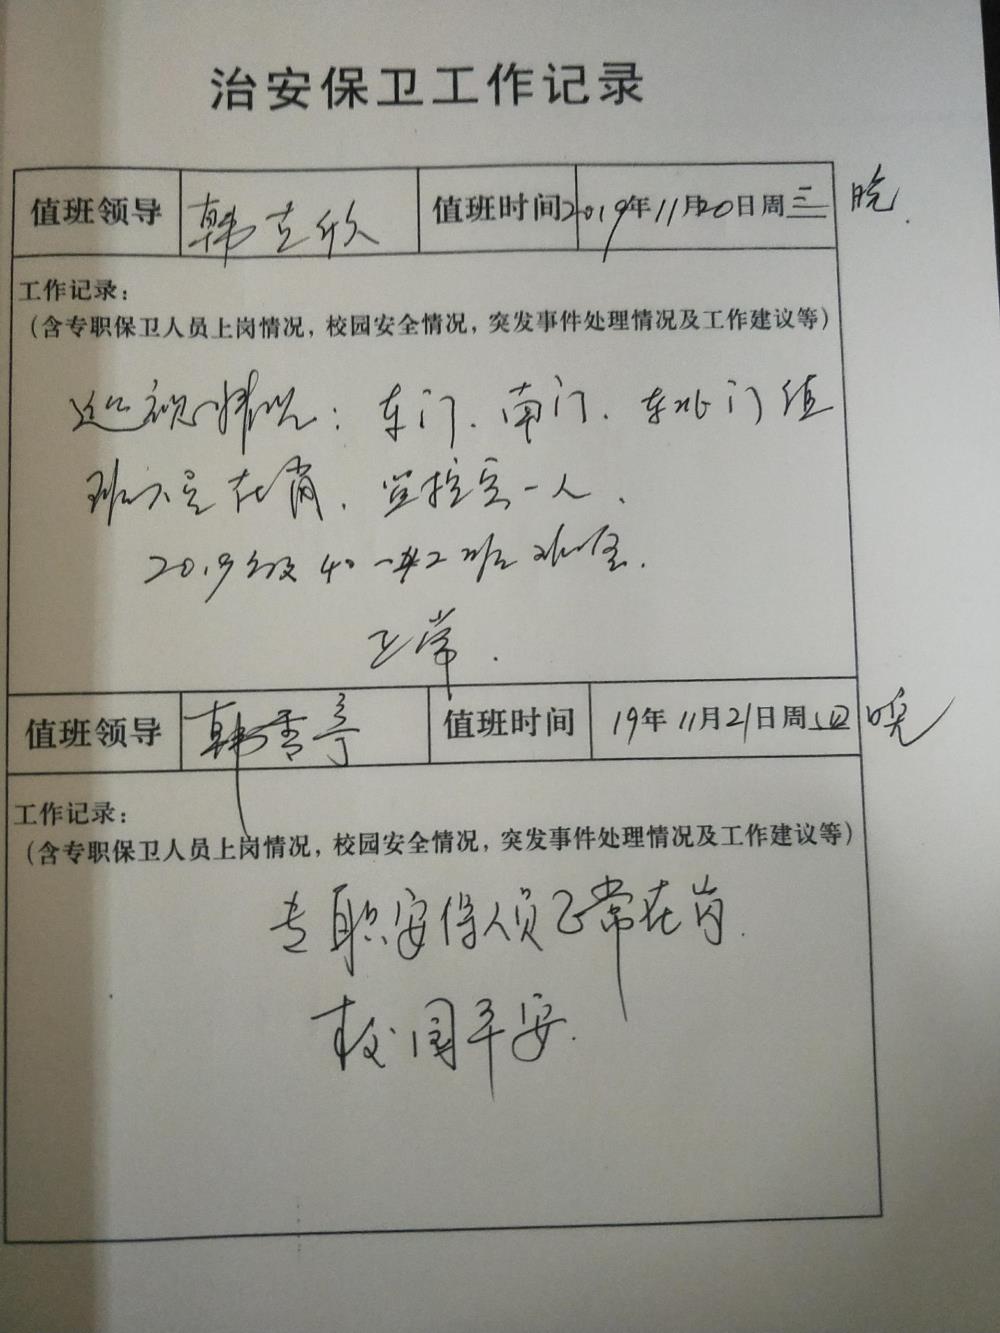 治安保卫工作记录
值班领导 韩克欣 值班时间 2019年11月20日周三 晚.
工作记录：
（含专职保卫人员上岗情况，校园安全情况，突发事件处理情况及工作建议等）
巡视情况：东门、南门、东北门值
班人员在岗、监控室一人、
2019级 2班
正常.
值班领导 韩香亭 值班时间 19年11月21日周四 晚
工作记录：
（含专职保卫人员上岗情况，校园安全情况，突发事件处理情况及工作建议等）
专职安保人员正常在岗.
校园平安.